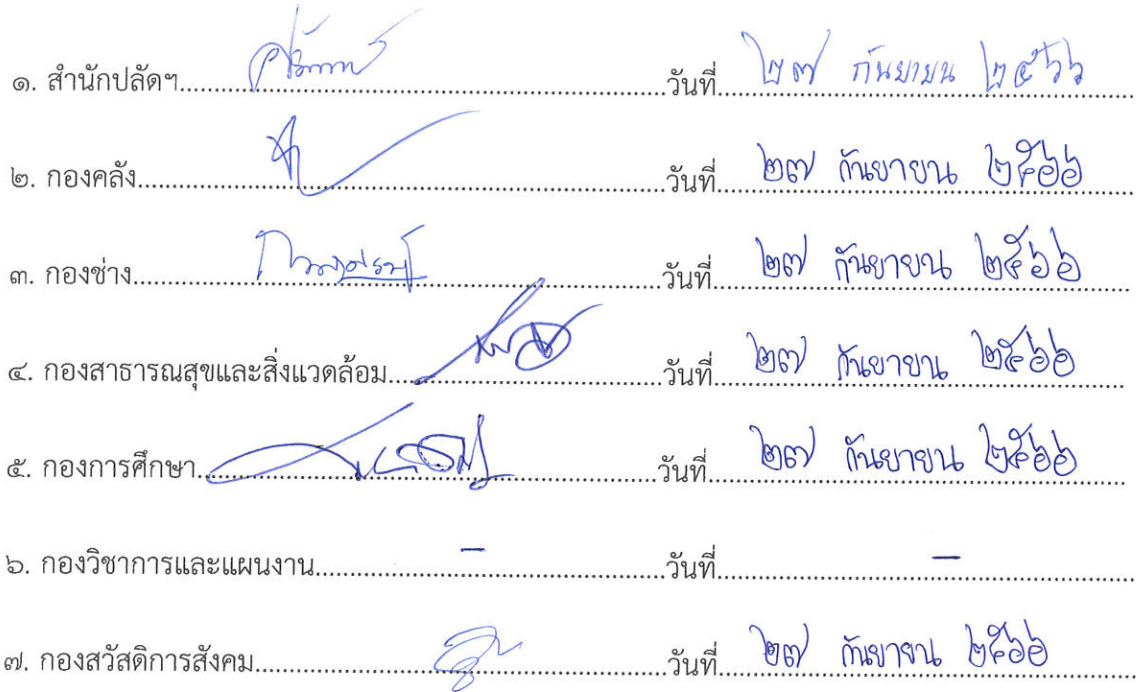 ๑. สำนักปลัดฯ วันที่ ๒๗ กันยายน ๒๕๖๖
๒. กองคลัง วันที่ ๒๗ กันยายน ๒๕๖๖
๓. กองช่าง วันที่ ๒๗ กันยายน ๒๕๖๖
๔. กองสาธารณสุขและสิ่งแวดล้อม วันที่ ๒๗ กันยายน ๒๕๖๖
๕. กองการศึกษา วันที่ ๒๗ กันยายน ๒๕๖๖
๖. กองวิชาการและแผนงาน - วันที่ -
๗. กองสวัสดิการสังคม วันที่ ๒๗ กันยายน ๒๕๖๖